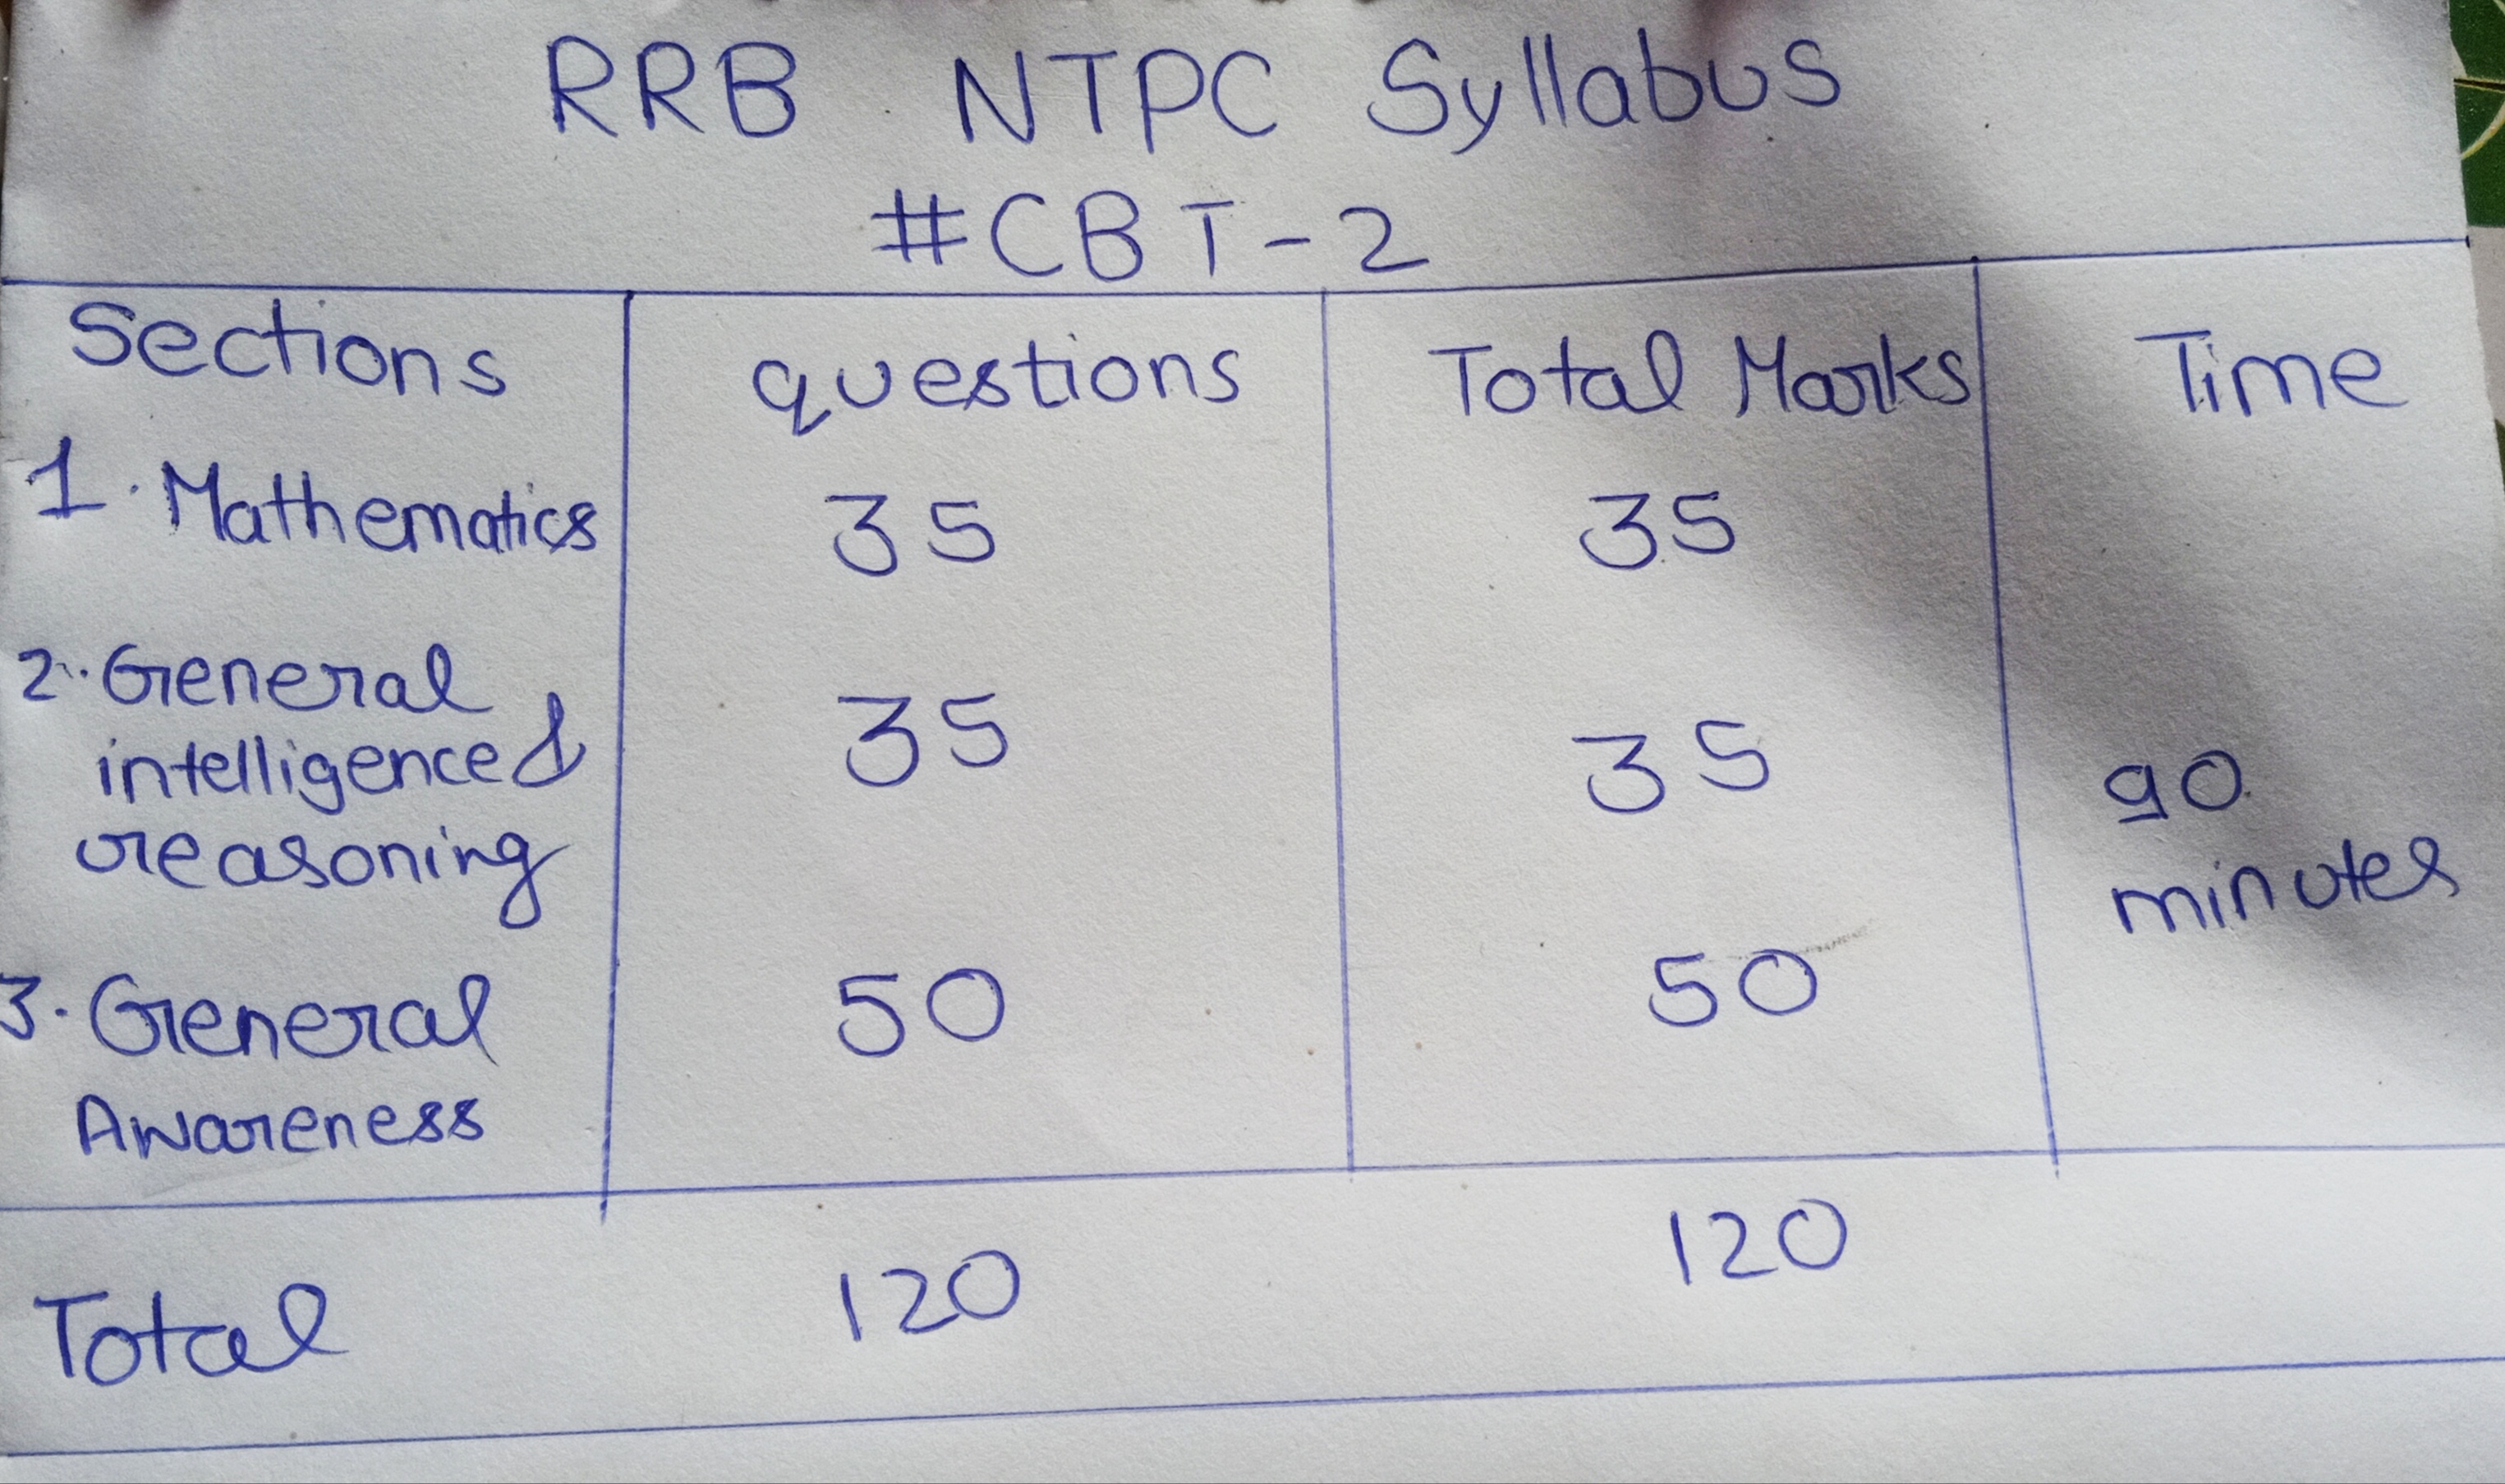 RRB NTPC Syllabus
#CBT-2
Sections questions Total Marks Time
1. Mathematics 35 35
2. General
intelligence &
reasoning
35 35
90
minutes
3. General
Awareness
50 50
Total 120 120